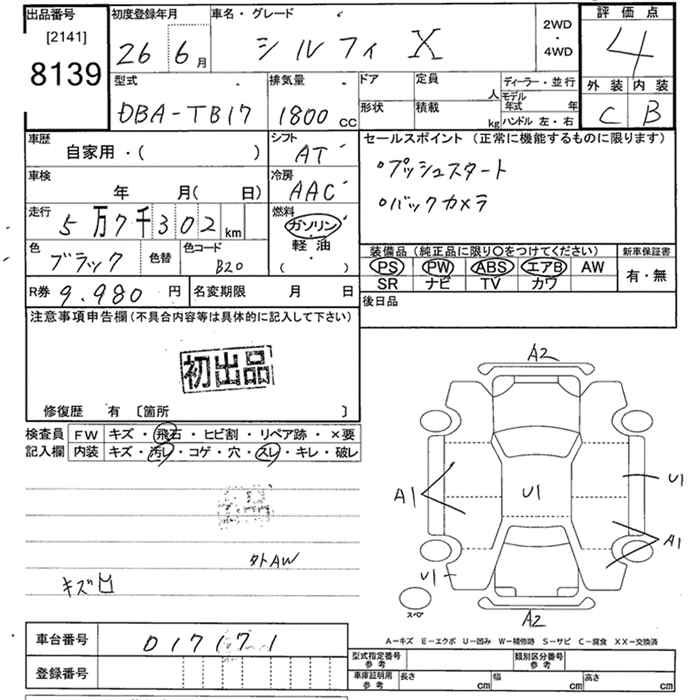 出品番号
[2141]
8139
初度登録年月
26 6月
車名・グレード
シルフィ X
2WD
・
4WD
評価点
4
外装 内装
C B
型式
DBA-TB17
排気量
1800 CC
ドア 定員 人
形状 積載 kg
ディーラー・並行
モデル年式 年
ハンドル 左・右
車歴
自家用・( )
シフト
AT
車検
年 月( 日)
冷房
AAC
走行
5万7千302 km
燃料
ガソリン
・
軽油
( )
色
ブラック
色替
色コード
B20
R券 9.980 円
名変期限 月 日
セールスポイント (正常に機能するものに限ります)
○プッシュスタート
○バックカメラ
装備品 (純正品に限り○をつけてください)
新車保証書
PS PW ABS エアB AW
SR ナビ TV カワ
有・無
後日品
注意事項申告欄(不具合内容等は具体的に記入して下さい)
初出品
修復歴 有 [箇所 ]
検査員
記入欄
FW キズ・飛石・ヒビ割・リペア跡・×要
内装 キズ・汚レ・コゲ・穴・スレ・キレ・破レ
タトAW
キズ凹
A2
A1
U1
U1
A1
U1
スペア
A2
A-キズ E-エクボ U-凹み W-補修跡 S-サビ C-腐食 XX-交換済
車台番号
017171
登録番号
型式指定番号
参考
類別区分番号
参考
車庫証明用
参考
長さ cm 幅 cm 高さ cm